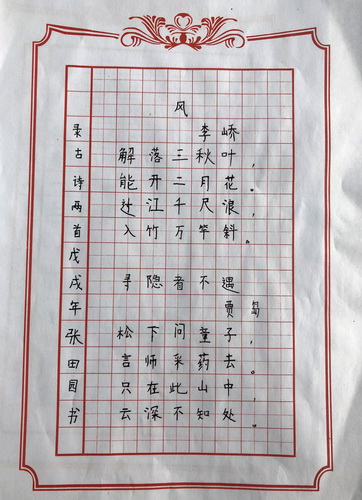 风
李峤
解落三秋叶，
能开二月花，
过江千尺浪，
入竹万竿斜。
寻隐者不遇
贾岛
松下问童子，
言师采药去。
只在此山中，
云深不知处。
录古诗两首戊戌年张田园书